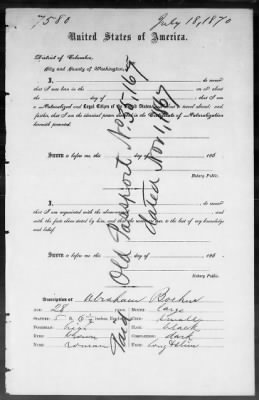 7580
July 18, 1870
United States of America.
District of Columbia,
City and County of Washington,
I, do swear
that I was born in the on
or about the day of that I am
a Naturalized and Legal Citizen of the United States, about to travel abroad; and
further, that I am the identical person described in the Certificate of Naturalization
herewith presented.
Sworn to before me, this day of 186
Notary Public.
I, do swear
that I am acquainted with the above
and with the facts above stated by him, and that the same are true, to the best of my knowledge
and belief.
Sworn to before me, this day of 186
Notary Public.
Old Passport No. 35,167
dated Nov 1, 1867
Paid
Description of Abraham
Age: 28 Mouth: Large
Stature: 5 ft. 6 1/2 inches, Eng. Chin: small
Forehead: high Hair: black
Eyes: brown Complexion: dark
Nose: roman Face: long & thin